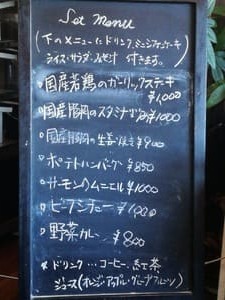 Set Menu
(下のメニューにドリンク、ミニシフォンケーキ
ライス・サラダ・みそ汁 付きます。)
・国産若鶏のガーリックステーキ
¥1,000
・国産豚肉のスタミナ ¥1000
・国産豚肉の生姜焼定 ¥900
・ポテトハンバーグ ¥850
・サーモンのムニエル ¥1000
・ビーフシチュー ¥1,200
・野菜カレー ¥800
* ドリンク…コーヒー、紅茶
ジュース(オレンジ・アップル・グレープフルーツ)